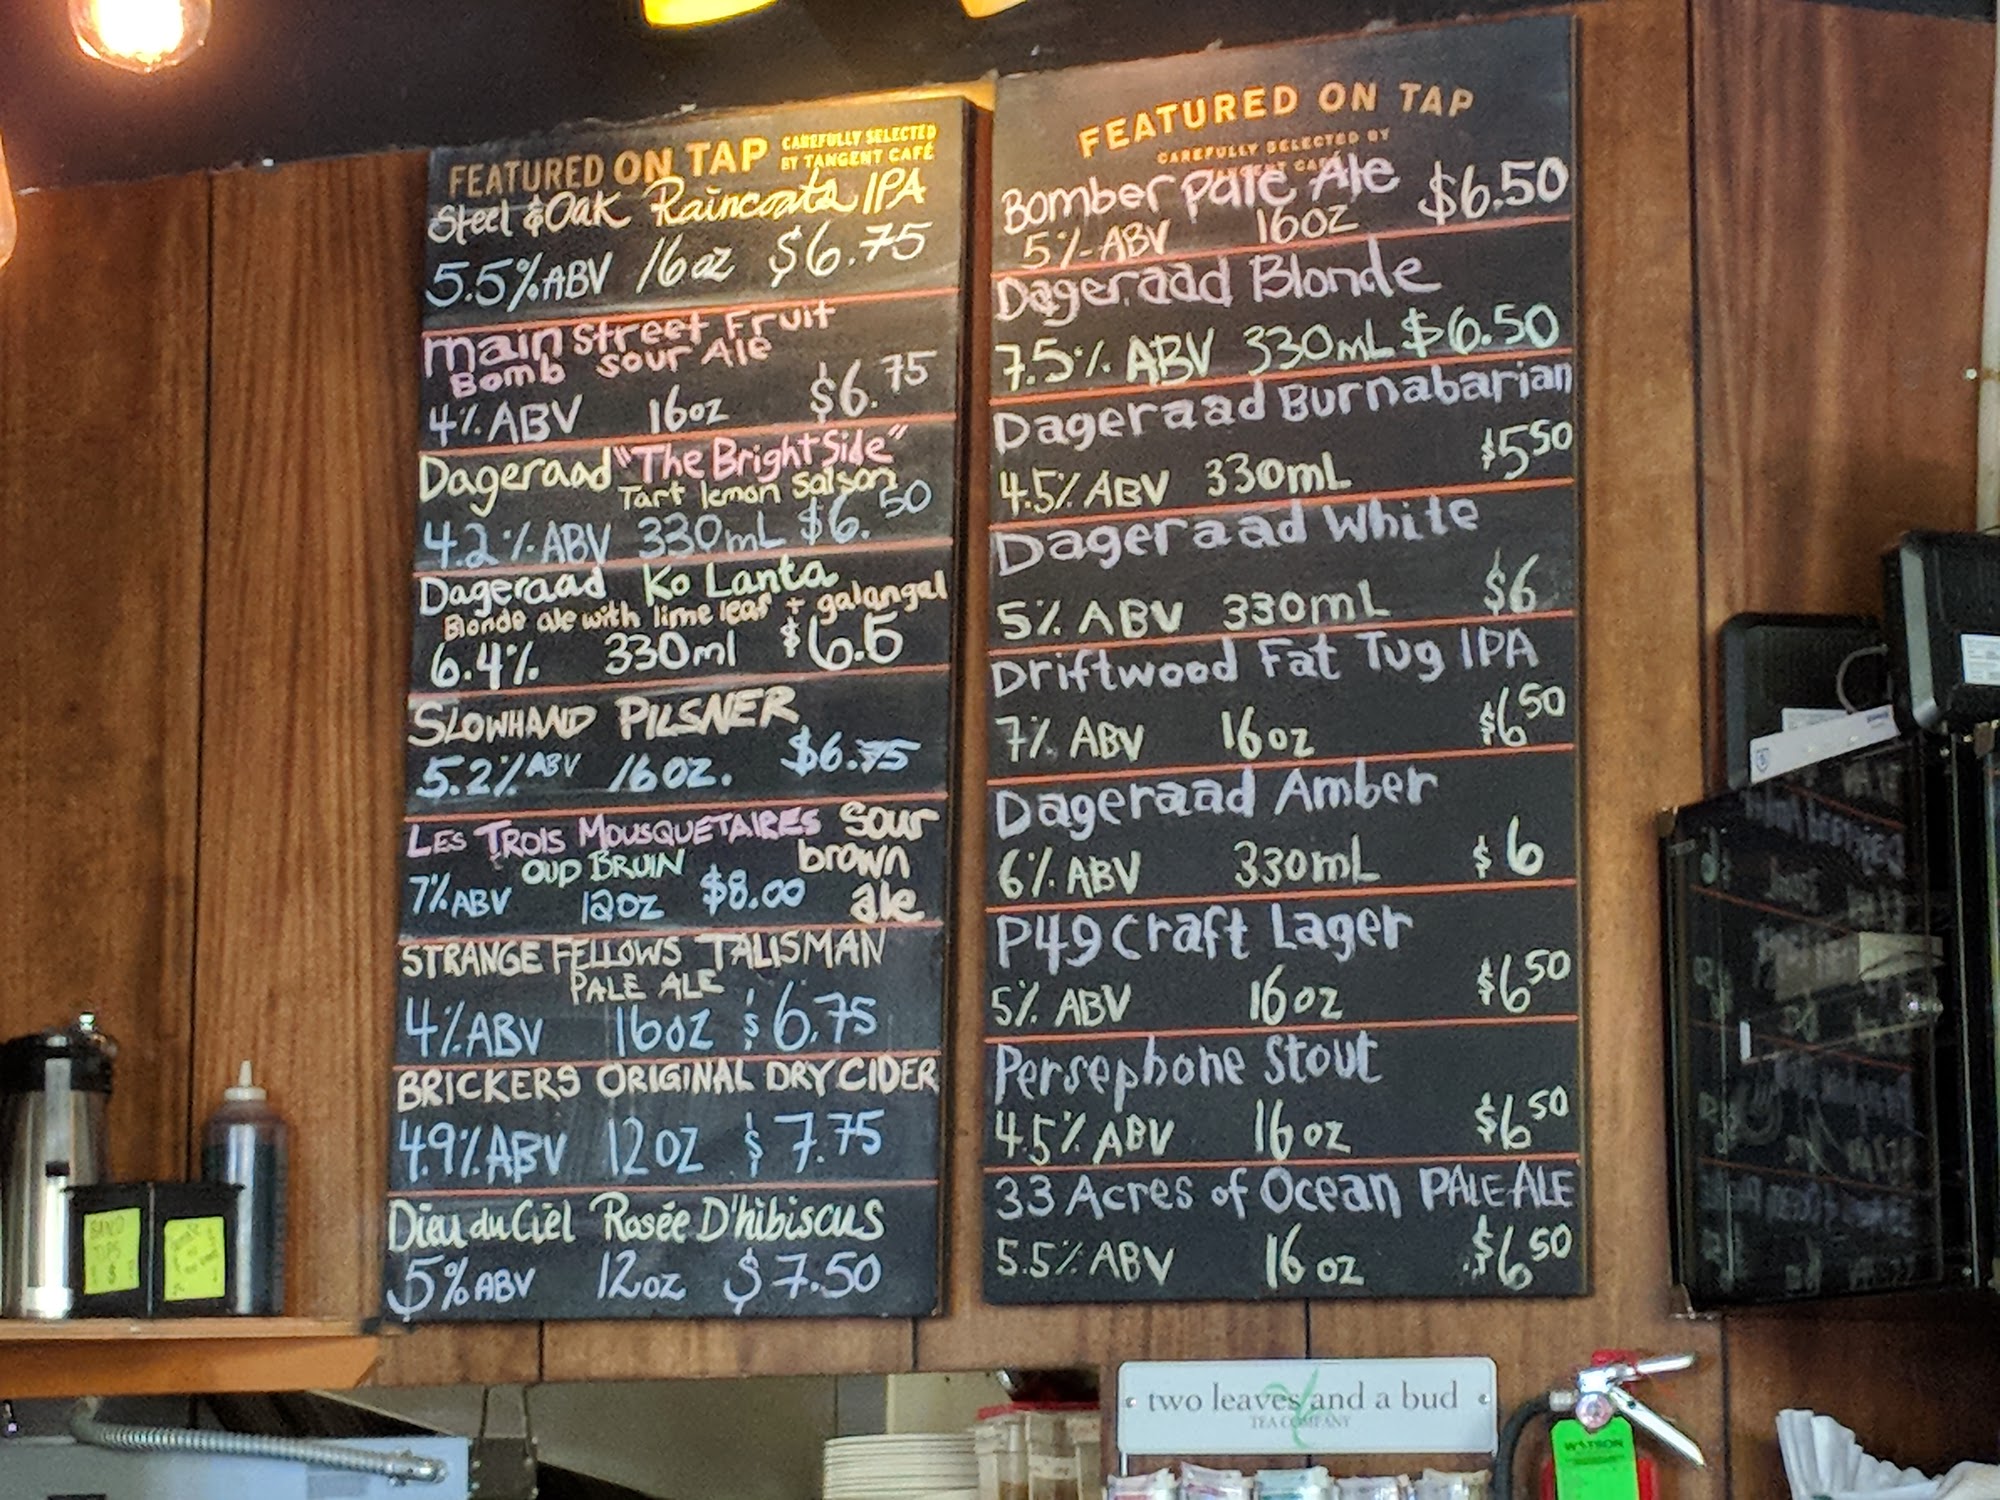 FEATURED ON TAP CAREFULLY SELECTED
BY TANGENT CAFÉ
Steel & Oak Raincoats IPA
5.5% ABV 16oz $6.75
Main Street Fruit
Bomb Sour Ale
4% ABV 16oz $6.75
Dageraad "The Bright Side"
Tart lemon saison
4.2% ABV 330mL $6.50
Dageraad Ko Lanta
Blonde ale with lime leaf + galangal
6.4% 330ml $6.5
SLOWHAND PILSNER
5.2% ABV 16oz. $6.75
LES TROIS MOUSQUETAIRES Sour
OUD BRUIN brown
7% ABV 12oz $8.00 ale
STRANGE FELLOWS TALISMAN
PALE ALE
4% ABV 16oz $6.75
BRICKERS ORIGINAL DRY CIDER
4.9% ABV 12oz $7.75
Dieu du Ciel Rosée D'hibiscus
5% ABV 12oz $7.50
FEATURED ON TAP
CAREFULLY SELECTED BY
TANGENT CAFÉ
Bomber Pale Ale $6.50
5% ABV 16oz
Dageraad Blonde
7.5% ABV 330mL $6.50
Dageraad Burnabarian
4.5% ABV 330mL $5.50
Dageraad White
5% ABV 330mL $6
Driftwood Fat Tug IPA
7% ABV 16oz $6.50
Dageraad Amber
6% ABV 330mL $6
P49 Craft Lager
5% ABV 16oz $6.50
Persephone Stout
4.5% ABV 16oz $6.50
33 Acres of Ocean PALE ALE
5.5% ABV 16oz $6.50
BAND
TIPS
! $ !
two leaves and a bud
TEA COMPANY
WATSON